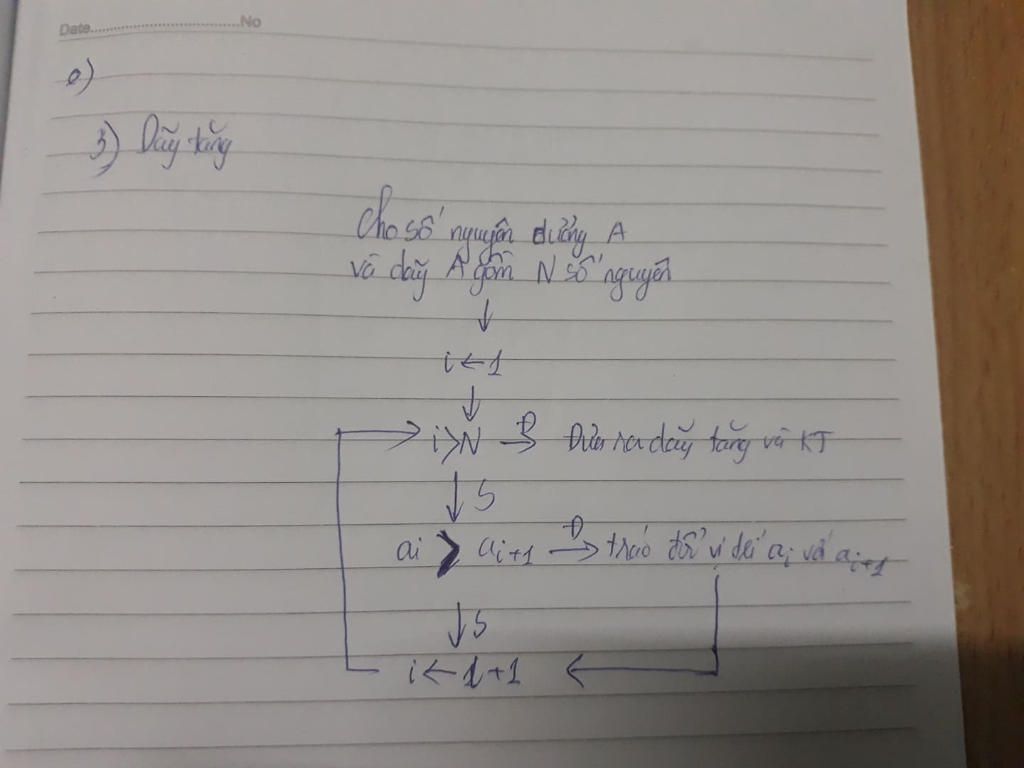 Date.................................No
a)
3) Dãy tăng
Cho số nguyên dương A
và dãy A gồm N số nguyên
↓
i ← 1
↓
i > N → Đ Đưa ra dãy tăng và KT
↓ S
ai > ai+1 → Đ tráo đổi vị trí ai và ai+1
↓ S
i ← 1 + 1 ←